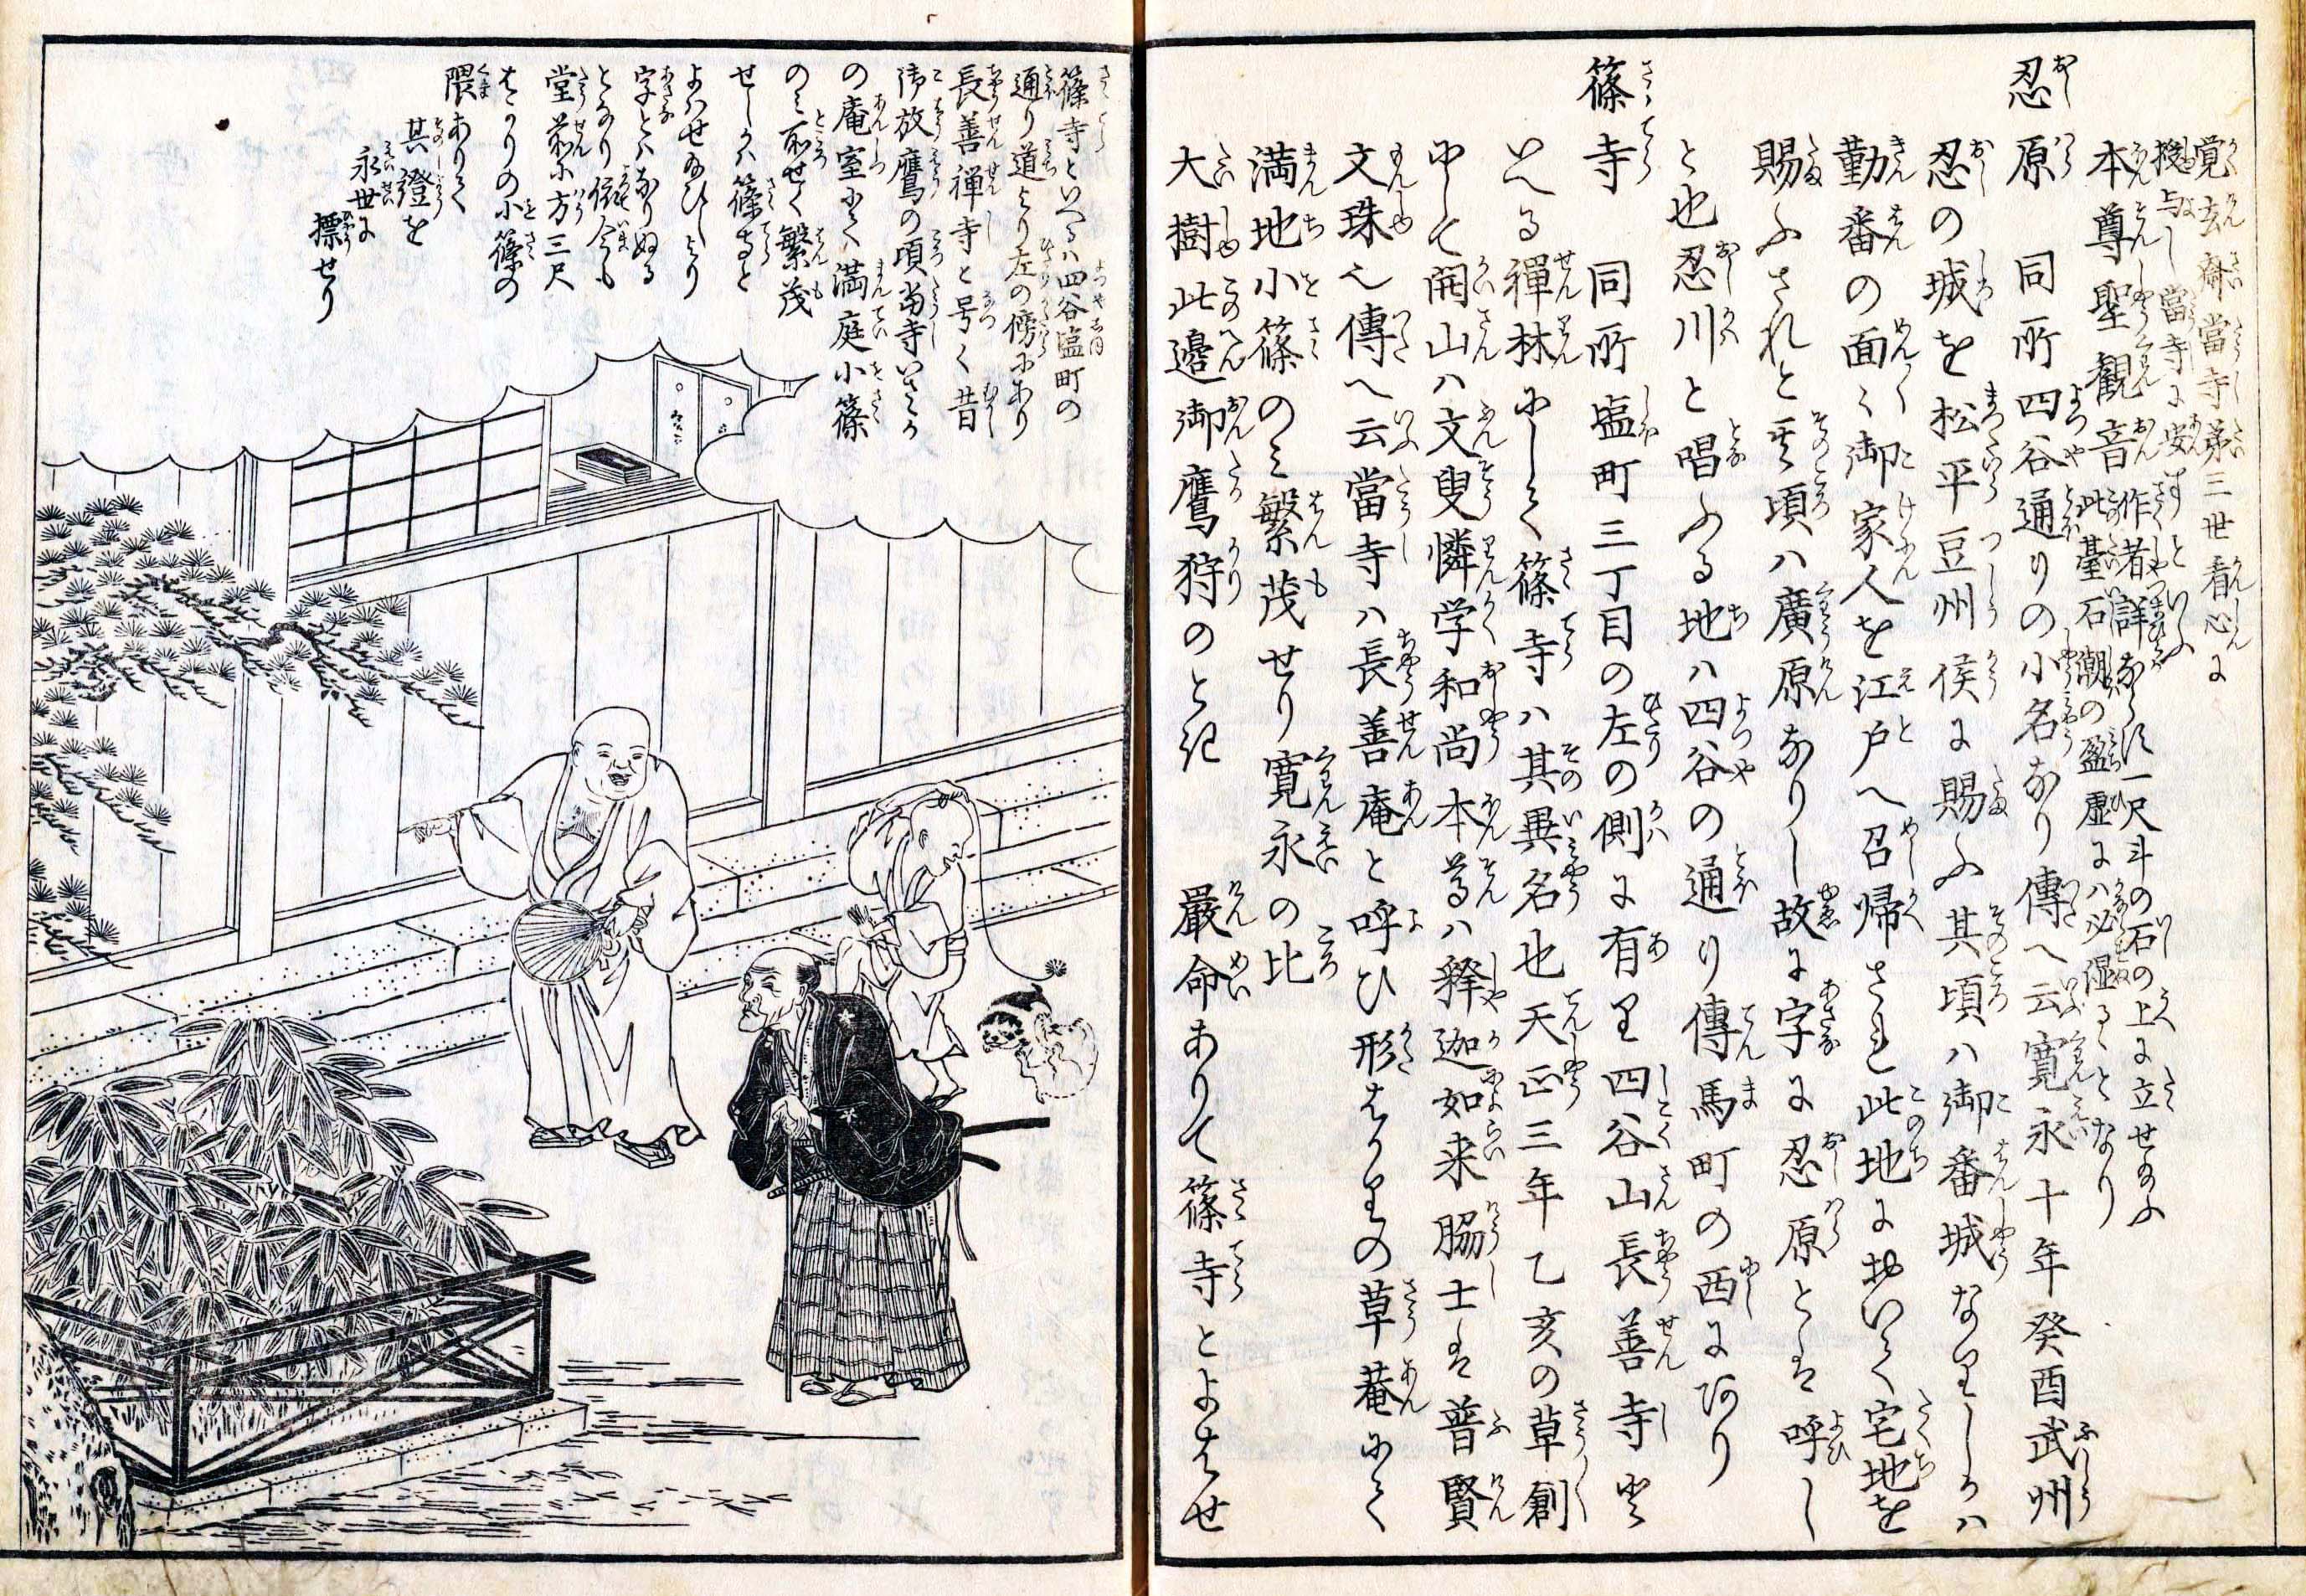 覚玄斎當寺第三世看心に
授与し當寺に安すといふ
本尊聖観音作者詳ならす一尺斗の石の上に立せ給ふ
此臺石潮の盈虚には必湿ることなり
忍原　同所四谷通りの小名なり傳へ云寛永十年癸酉武州
忍の城を松平豆州侯に賜ふ其頃ハ御番城なりしかハ
勤番の面々御家人を江戸へ召帰され此地におゐて宅地を
賜ふされと其頃ハ廣原なりし故に字に忍原とは呼し
と也忍川と唱ふる地ハ四谷の通り傳馬町の西にあり
篠寺　同所塩町三丁目の左の側に有り四谷山長善寺と
いへる禪林にして篠寺ハ其異名也天正三年乙亥の草創
にして開山ハ文叟憐学和尚本尊ハ釋迦如来脇士は普賢
文珠也傳へ云當寺ハ長善庵と呼ひ形はかりの草菴にて
満地小篠のミ繁茂せり寛永の比
大樹此邊御鷹狩のとき　嚴命ありて篠寺とよはせ
篠寺といへるハ四谷塩町の
通り道より左の傍にあり
長善禅寺と号く昔
御放鷹の頃當寺いさゝか
の庵室にて満庭小篠
のミ所せく繁茂
せしかハ篠寺と
よハせ給ひしより
字とハなりぬる
となり依今も
堂前に方三尺
はかりの小篠の
隈ありて
其證を
永世に
標せり